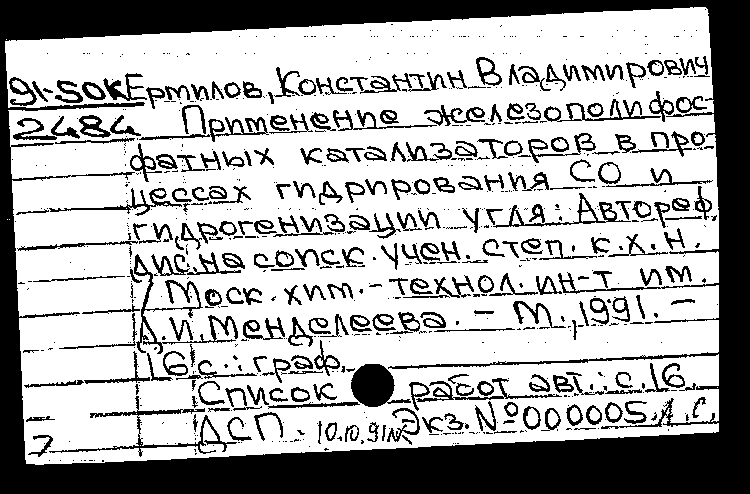 91-50К Ермилов, Константин Владимирович
2484 Применение железополифос-
фатных катализаторов в про-
цессах гидрирования СО и
гидрогенизации угля: Автореф.
дис. на соиск. учен. степ. к.х.н.
/ Моск. хим.-технол. ин-т им.
Д.И. Менделеева. - М., 1991. -
16 с.: граф.
Список работ авт.: с. 16.
ДСП. 10.10.91 Экз. № 000005.
7